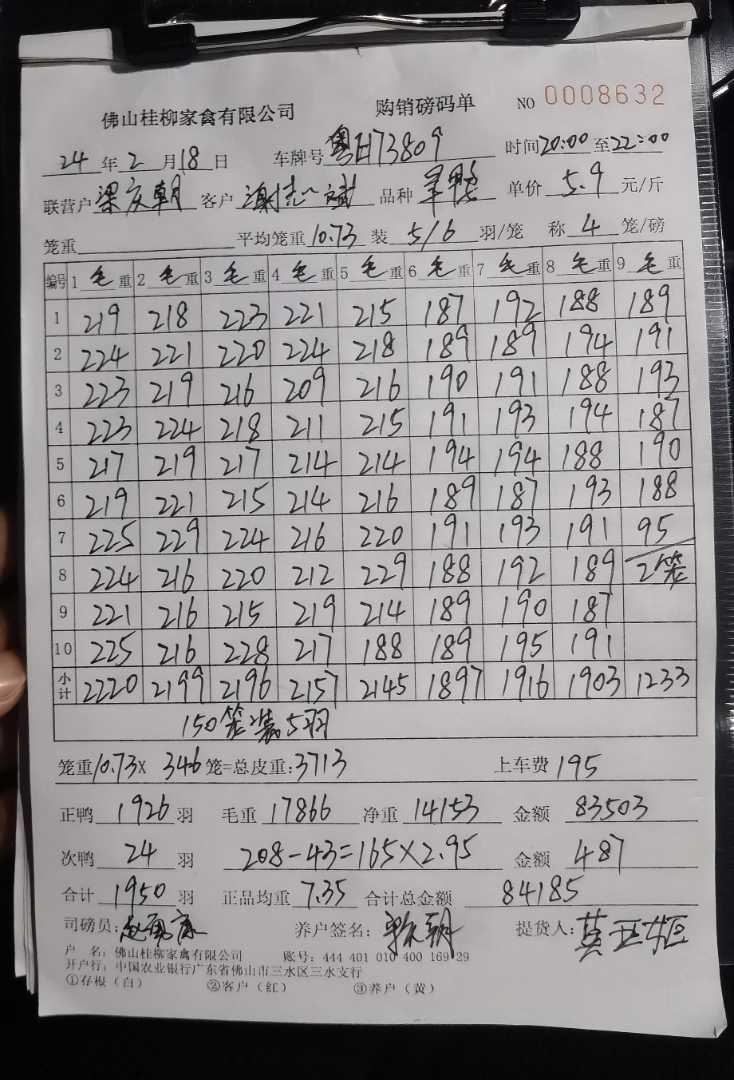 佛山桂柳家禽有限公司 购销磅码单 NO 0008632
24 年 2 月 18 日 车牌号 粤H73809 时间 20:00 至 22:00
联营户 梁庆朝 客户 品种 单价 5.9 元/斤
笼重 平均笼重 10.73 装 5/6 羽/笼 称 4 笼/磅
编号 1 毛 重 2 毛 重 3 毛 重 4 毛 重 5 毛 重 6 毛 重 7 毛 重 8 毛 重 9 毛 重
1 219 218 223 221 215 187 192 188 189
2 224 221 220 224 218 189 189 194 191
3 223 219 216 209 216 190 191 188 193
4 223 224 218 211 215 191 193 194 187
5 217 219 217 214 214 194 194 188 190
6 219 221 215 214 216 189 187 193 188
7 225 229 224 216 220 191 193 191 95
8 224 216 220 212 229 188 192 189 2笼
9 221 216 215 219 214 189 190 187
10 225 216 228 217 188 189 195 191
小计 2220 2199 2196 2157 2145 1897 1916 1903 1233
150笼装5羽
笼重 10.73 X 346 笼=总皮重: 3713 上车费 195
正鸭 1926 羽 毛重 17866 净重 14153 金额 83503
次鸭 24 羽 208-43=165×2.95 金额 487
合计 1950 羽 正品均重 7.35 合计总金额 84185
司磅员: 养户签名: 提货人:
户 名: 佛山桂柳家禽有限公司 账号: 444 401 010 400 169 29
开户行: 中国农业银行广东省佛山市三水区三水支行
①存根(白) ②客户(红) ③养户(黄)